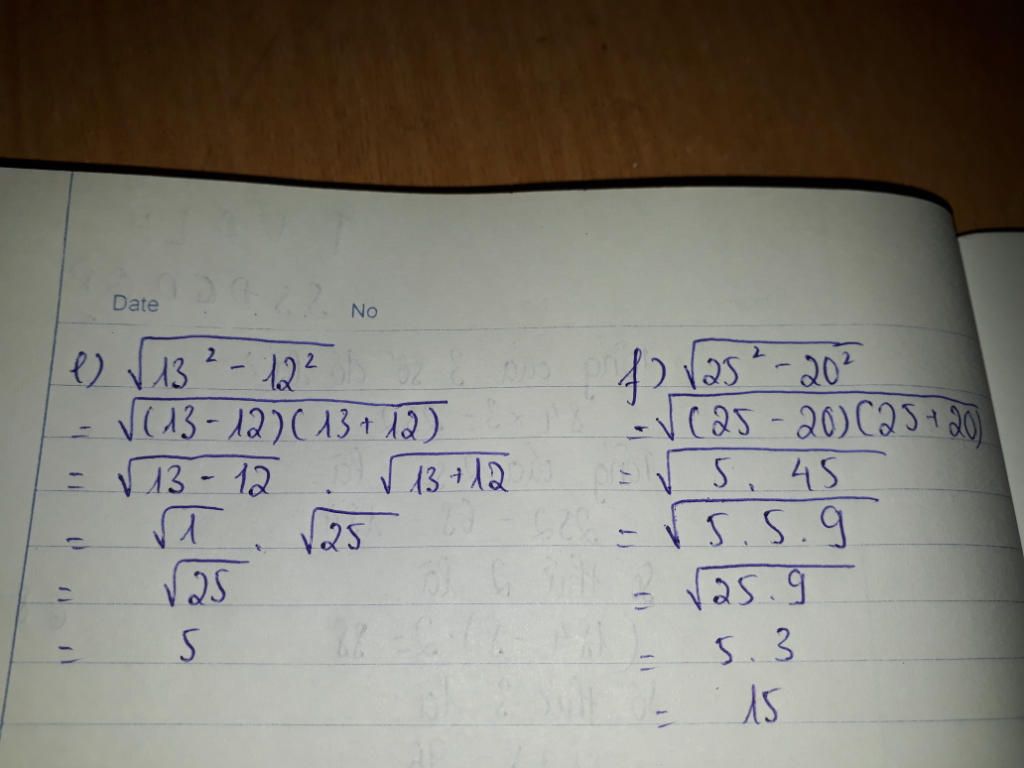 Date No
e) √13² - 12²
= √(13 - 12)(13 + 12)
= √13 - 12 . √13 + 12
= √1 . √25
= √25
= 5
f) √25² - 20²
= √(25 - 20)(25 + 20)
= √5 . 45
= √5 . 5 . 9
= √25 . 9
= 5 . 3
= 15